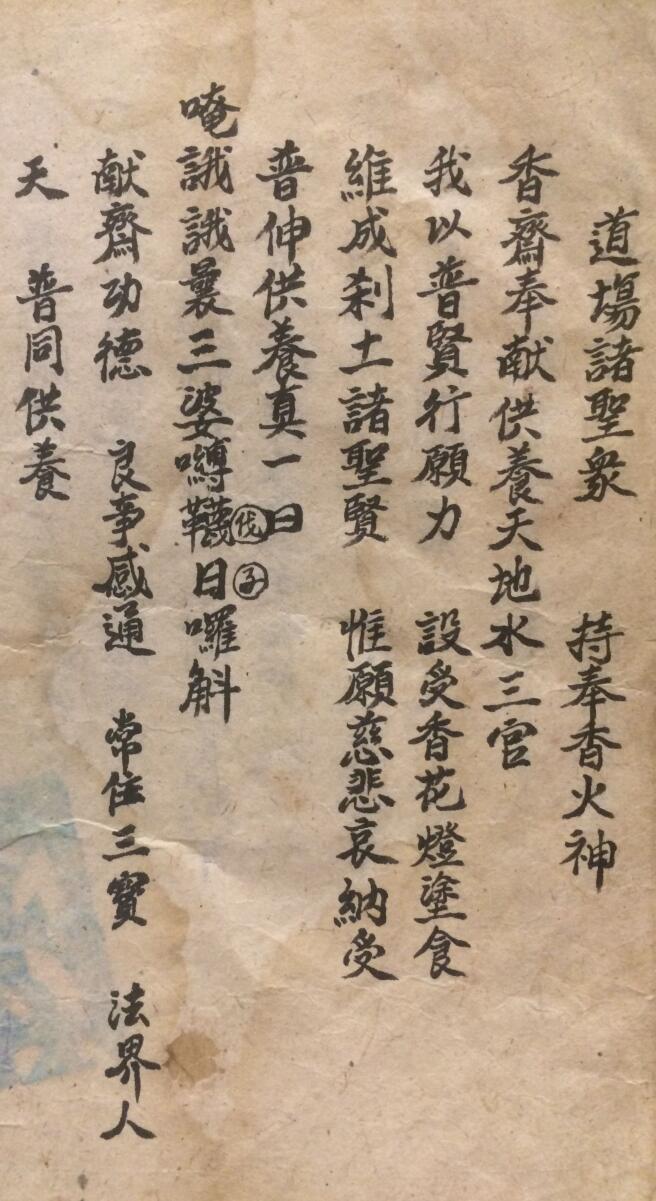 道塲諸聖衆　持奉香火神
香齋奉献供養天地水三官
我以普賢行願力　設受香花燈塗食
維成刹土諸聖賢　惟願慈悲哀納受
普伸供養真一日
唵誐誐曩三婆嚩韈伐日子囉斛
献齋功德　良事感通　常住三寳　法界人
天　普同供養